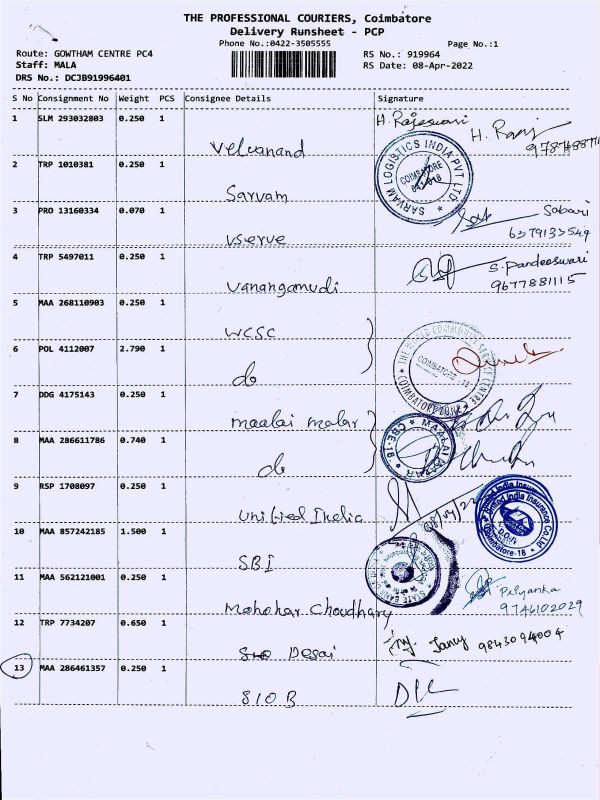 THE PROFESSIONAL COURIERS, Coimbatore
Delivery Runsheet - PCP
Phone No.:0422-3505555
Page No.:1
Route: GOWTHAM CENTRE PC4
RS No.: 919964
Staff: MALA
RS Date: 08-Apr-2022
DRS No.: DCJB91996401
S No Consignment No Weight PCS Consignee Details Signature
1 SLM 293032803 0.250 1 H. Rajeswari
Velvanand
2 TRP 1010381 0.250 1
SARVAM LOGISTICS INDIA PVT LTD
COIMBATORE
Sarvam
3 PRO 13160334 0.070 1 Sabari
Vserve 6379133549
4 TRP 5497011 0.250 1 S. Pandeeswari
Vanangamudi 9677881115
5 MAA 268110903 0.250 1
WCSC
6 POL 4112007 2.790 1
THE WORLD COMMUNITY SERVICE CENTRE
COIMBATORE - 18
COIMBATORE ZONE
do
7 DDG 4175143 0.250 1
maalai malar
8 MAA 286611786 0.740 1
MAALAI MALAR
CBE-18
do
9 RSP 1708097 0.250 1
United India
08/04/22
United India Insurance Co. Ltd
Coimbatore-18
10 MAA 857242185 1.500 1
SBI
11 MAA 562121001 0.250 1 Priyanka
Mahohar Choudhary 9746102029
12 TRP 7734207 0.650 1 Jancy 9843094004
Desai
13 MAA 286461357 0.250 1
SIOB